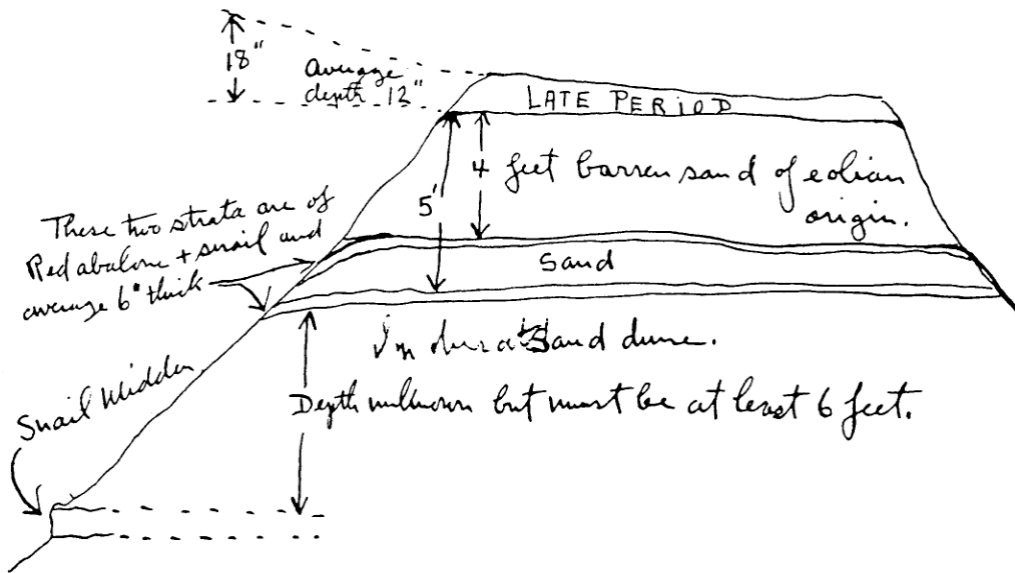 18"
average
depth 12"
LATE PERIOD
4 feet barren sand of eolian
origin.
5'
These two strata are of
Red abalone + snail and
average 6" thick
Sand
Sand dune.
Snail Midden
Depth unknown but must be at least 6 feet.